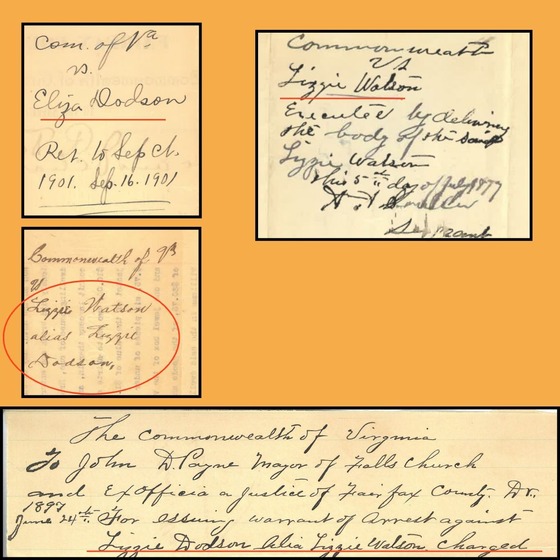 Com. of Va
vs.
Eliza Dodson
Ret. to Sep Ct.
1901. Sep. 16. 1901
Commonwealth
VS
Lizzie Watson
Executed by delivering
the body of the said
Lizzie Watson
this 5th day of July 1897
Sergeant
Commonwealth of Va
vs
Lizzie Watson
alias Lizzie
Dodson,
The Commonwealth of Virginia
To John D Payne Mayor of Falls Church
and Exofficia a Justice of Fairfax County. Dr.
1897
June 24th For issuing warrant of Arrest against
Lizzie Dodson Alia Lizzie Watson Charged